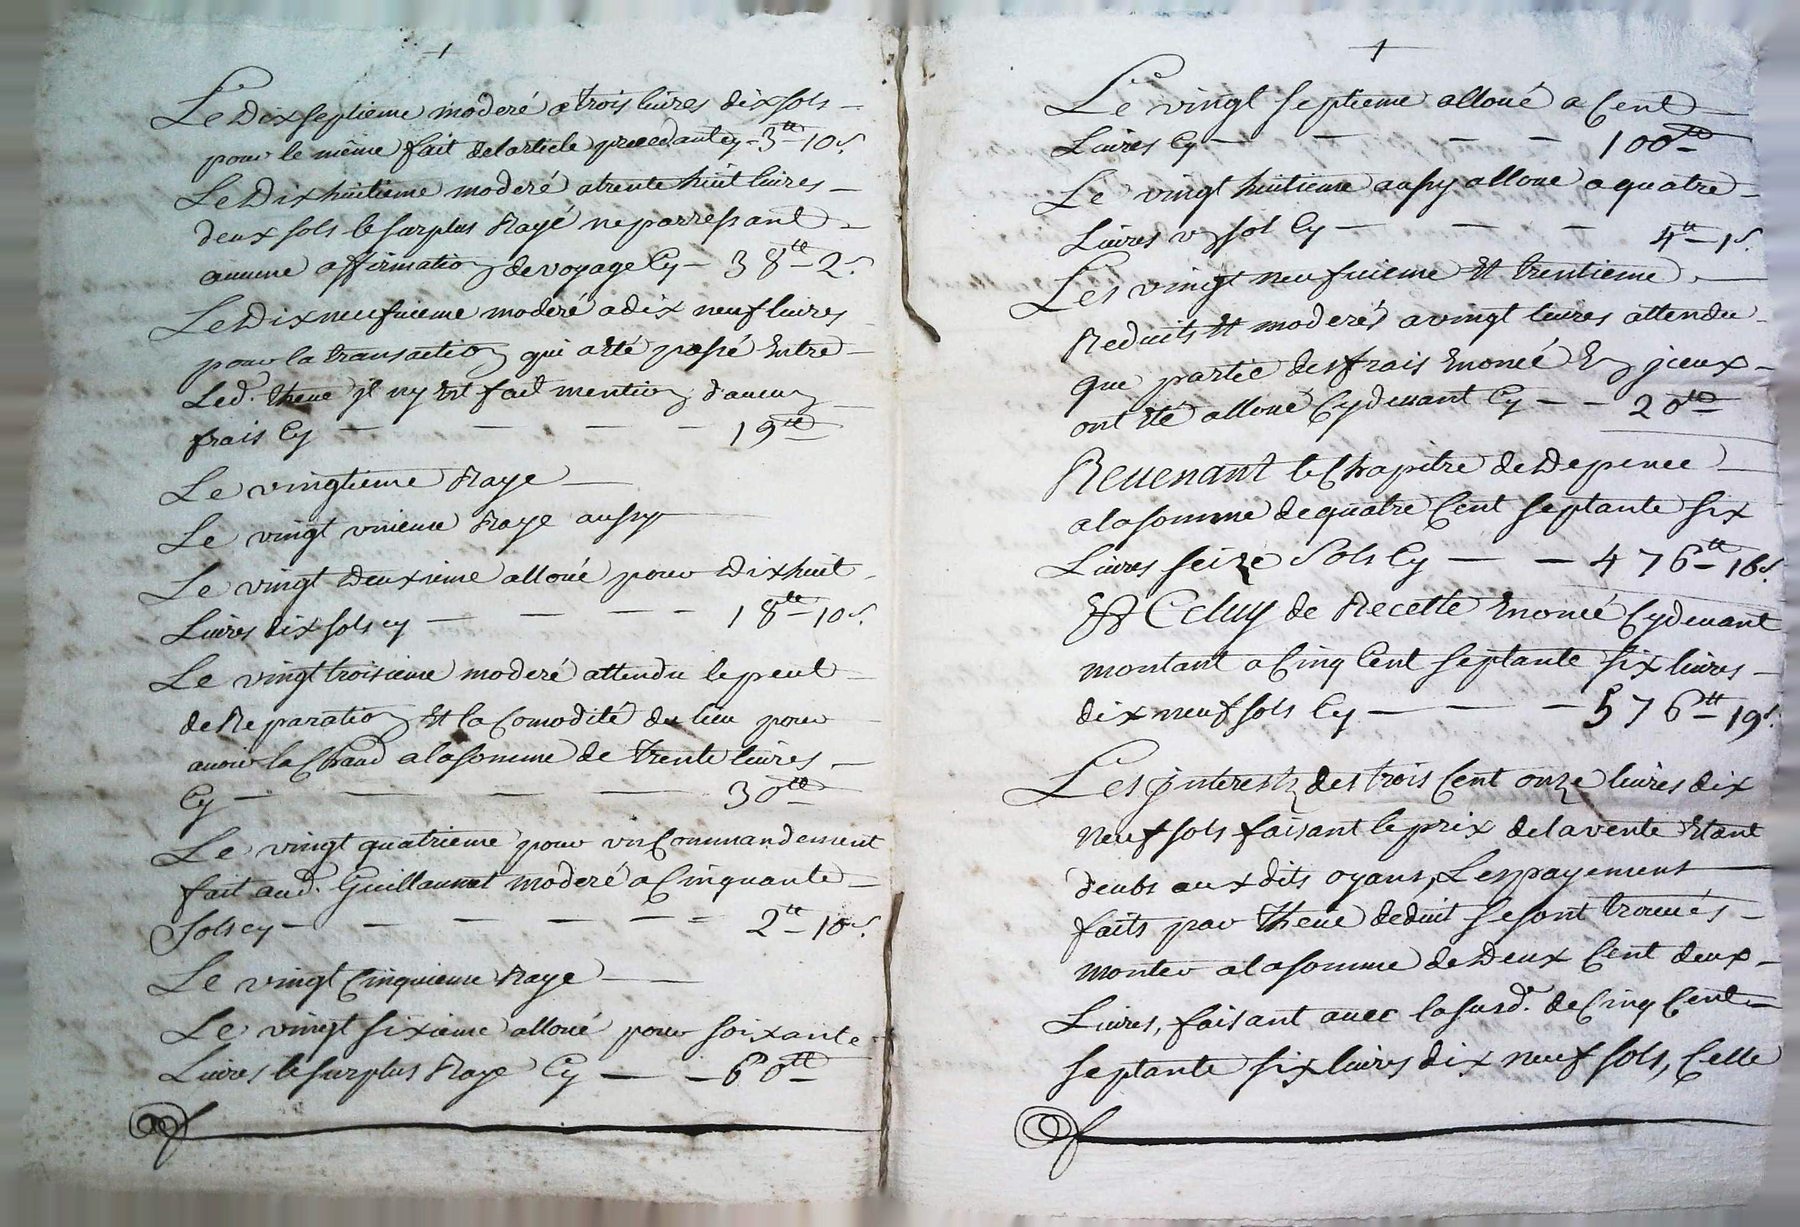 Le Dixseptieme moderé a trois livres dix sols
pour le méme fait del article precedant cy - 3tt - 10 s.
Le Dixhuitieme moderé a trente huit livres
deux sols le surplus Rayé ne parressant
aucune affirmation de voyage Cy - 38tt - 2 s.
Le Dixneufvieme moderé a dix neuf livres
pour la transaction qui a eté passé Entre
Led. theue il ny Est fait mention d'aucun
frais Cy - - - - 19tt
Le vingtieme Raye
Le vingt unieme Raye aussy
Le vingt Deuxieme alloué pour Dixhuit
Livres dix sols cy - - - - 18tt - 10 s.
Le vingt troisieme moderé attendu le peut
de Reparation Et la Comodité du lieu pour
avoir la Chaud a la somme de trente livres
Cy - - - - 30tt
Le vingt quatrieme pour un Commandement
fait aud. Guillaumat moderé a Cinquante
Sols cy - - - - - 2tt - 10 s.
Le vingt Cinquieme Raye
Le vingt sixieme alloué pour soixante
Livres le surplus Raye Cy - - 60tt
Le vingt septieme alloué a Cent
Livres Cy - - - - 100tt
Le vingt huitieme aussy alloue a quatre
Livres un sol Cy - - - 4tt - 1 s.
Les vingt neufvieme Et trentieme
Reduits Et moderés a vingt livres attendu
que partie des frais Enoncé En jceux
ont Eté alloué Cydevant Cy - - 20tt
Revenant le Chapitre de Depence
a la somme de quatre Cent septante six
Livres seize Sols Cy - - 476tt - 16 s.
Et Celuy de Recette Enoncé Cydevant
montant a Cinq Cent septante six livres
dix neuf sols Cy - - - 576tt - 19 s.
Les jnterests des trois Cent onze livres dix
neuf sols faisant le prix de la vente Etant
deubs aux dits oyans, Les payements
faits par theue deduit se sont trouvés
monter a la somme de Deux Cent deux
Livres, faisant avec la susd. de Cinq Cent
septante six livres dix neuf sols, Celle